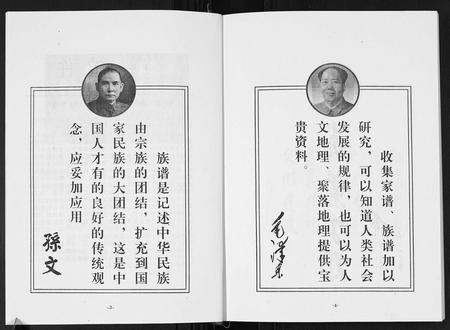 族谱是记述中华民族
由宗族的团结，扩充到国
家民族的大团结，这是中
国人才有的良好的传统观
念，应妥加应用
孫文
-3-
收集家谱、族谱加以
研究，可以知道人类社会
发展的规律，也可以为人
文地理、聚落地理提供宝
贵资料。
毛泽东
-4-